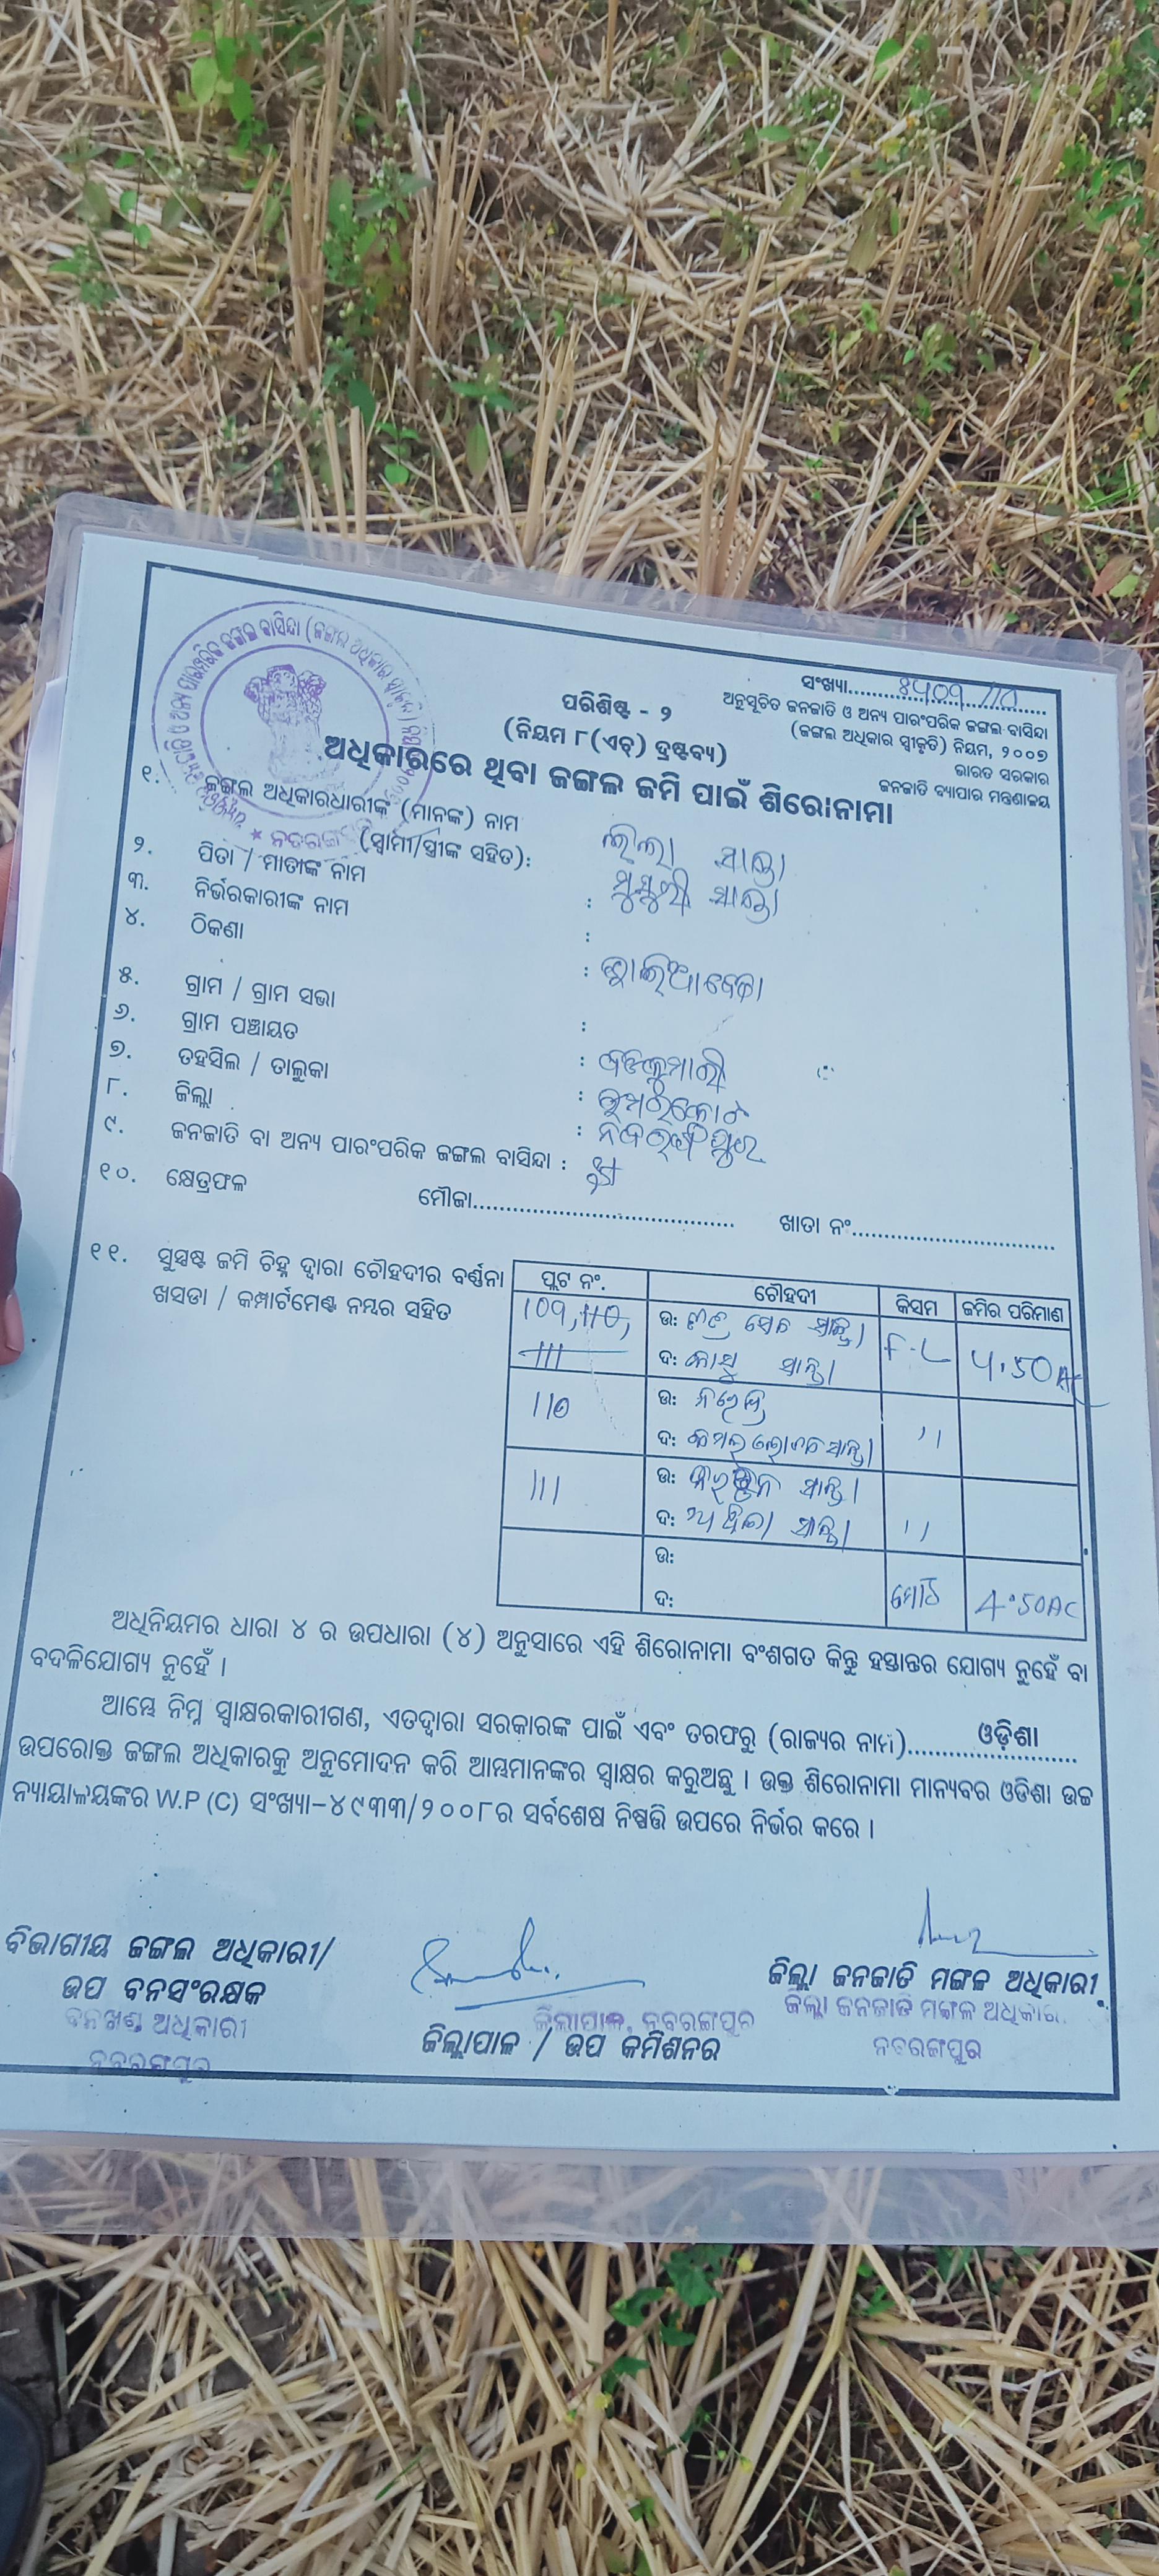 ସଂଖ୍ୟା
ଅନୁସୂଚିତ ଜନଜାତି ଓ ଅନ୍ୟ ପାରଂପରିକ ଜଙ୍ଗଲ ବାସିନ୍ଦା
(ଜଙ୍ଗଲ ଅଧିକାର ସ୍ୱୀକୃତି) ନିୟମ, ୨୦୦୭
ଭାରତ ସରକାର
ଜନଜାତି ବ୍ୟାପାର ମନ୍ତ୍ରଣାଳୟ
ପରିଶିଷ୍ଟ - ୨
(ନିୟମ ୮(ଏଚ୍) ଦ୍ରଷ୍ଟବ୍ୟ)
ଅଧିକାରରେ ଥିବା ଜଙ୍ଗଲ ଜମି ପାଇଁ ଶିରୋନାମା
୧. ଜଙ୍ଗଲ ଅଧିକାରଧାରୀଙ୍କ (ମାନଙ୍କ) ନାମ
(ସ୍ୱାମୀ/ସ୍ତ୍ରୀଙ୍କ ସହିତ): ଲିଲା ସାନ୍ତା
୨. ପିତା / ମାତାଙ୍କ ନାମ : ସାନ୍ତା
୩. ନିର୍ଭରକାରୀଙ୍କ ନାମ :
୪. ଠିକଣା :
୫. ଗ୍ରାମ / ଗ୍ରାମ ସଭା :
୬. ଗ୍ରାମ ପଞ୍ଚାୟତ :
୭. ତହସିଲ / ତାଲୁକା :
୮. ଜିଲ୍ଲା : ନବରଙ୍ଗପୁର
୯. ଜନଜାତି ବା ଅନ୍ୟ ପାରଂପରିକ ଜଙ୍ଗଲ ବାସିନ୍ଦା :
୧୦. କ୍ଷେତ୍ରଫଳ ମୌଜା ଖାତା ନଂ
୧୧. ସୁସ୍ପଷ୍ଟ ଜମି ଚିହ୍ନ ଦ୍ୱାରା ଚୌହଦୀର ବର୍ଣ୍ଣନା
ଖସଡା / କମ୍ପାର୍ଟମେଣ୍ଟ ନମ୍ବର ସହିତ
ପ୍ଲଟ ନଂ. ଚୌହଦୀ କିସମ ଜମିର ପରିମାଣ
109, 110, ଉ: ସାନ୍ତା F-L 4.50AC
111 ଦ: ସାନ୍ତା
110 ଉ: ''
ଦ: ସାନ୍ତା
111 ଉ: ସାନ୍ତା
ଦ: ସାନ୍ତା ''
ଉ:
ଦ: ମୋଟ 4.50AC
ଅଧିନିୟମର ଧାରା ୪ ର ଉପଧାରା (୪) ଅନୁସାରେ ଏହି ଶିରୋନାମା ବଂଶଗତ କିନ୍ତୁ ହସ୍ତାନ୍ତର ଯୋଗ୍ୟ ନୁହେଁ ବା
ବଦଳିଯୋଗ୍ୟ ନୁହେଁ ।
ଆମ୍ଭେ ନିମ୍ନ ସ୍ୱାକ୍ଷରକାରୀଗଣ, ଏତଦ୍ୱାରା ସରକାରଙ୍କ ପାଇଁ ଏବଂ ତରଫରୁ (ରାଜ୍ୟର ନାମ) ଓଡ଼ିଶା
ଉପରୋକ୍ତ ଜଙ୍ଗଲ ଅଧିକାରକୁ ଅନୁମୋଦନ କରି ଆମ୍ଭମାନଙ୍କର ସ୍ୱାକ୍ଷର କରୁଅଛୁ । ଉକ୍ତ ଶିରୋନାମା ମାନ୍ୟବର ଓଡିଶା ଉଚ୍ଚ
ନ୍ୟାୟାଳୟଙ୍କର W.P (C) ସଂଖ୍ୟା-୪୯୩୩/୨୦୦୮ର ସର୍ବଶେଷ ନିଷ୍ପତ୍ତି ଉପରେ ନିର୍ଭର କରେ ।
ବିଭାଗୀୟ ଜଙ୍ଗଲ ଅଧିକାରୀ/
ଉପ ବନସଂରକ୍ଷକ
ବନଖଣ୍ଡ ଅଧିକାରୀ
ନବରଙ୍ଗପୁର
ଜିଲାପାଳ, ନବରଙ୍ଗପୁର
ଜିଲ୍ଲାପାଳ / ଉପ କମିଶନର
ଜିଲ୍ଲା ଜନଜାତି ମଙ୍ଗଳ ଅଧିକାରୀ
ଜିଲ୍ଲା ଜନଜାତି ମଙ୍ଗଳ ଅଧିକାରୀ
ନବରଙ୍ଗପୁର